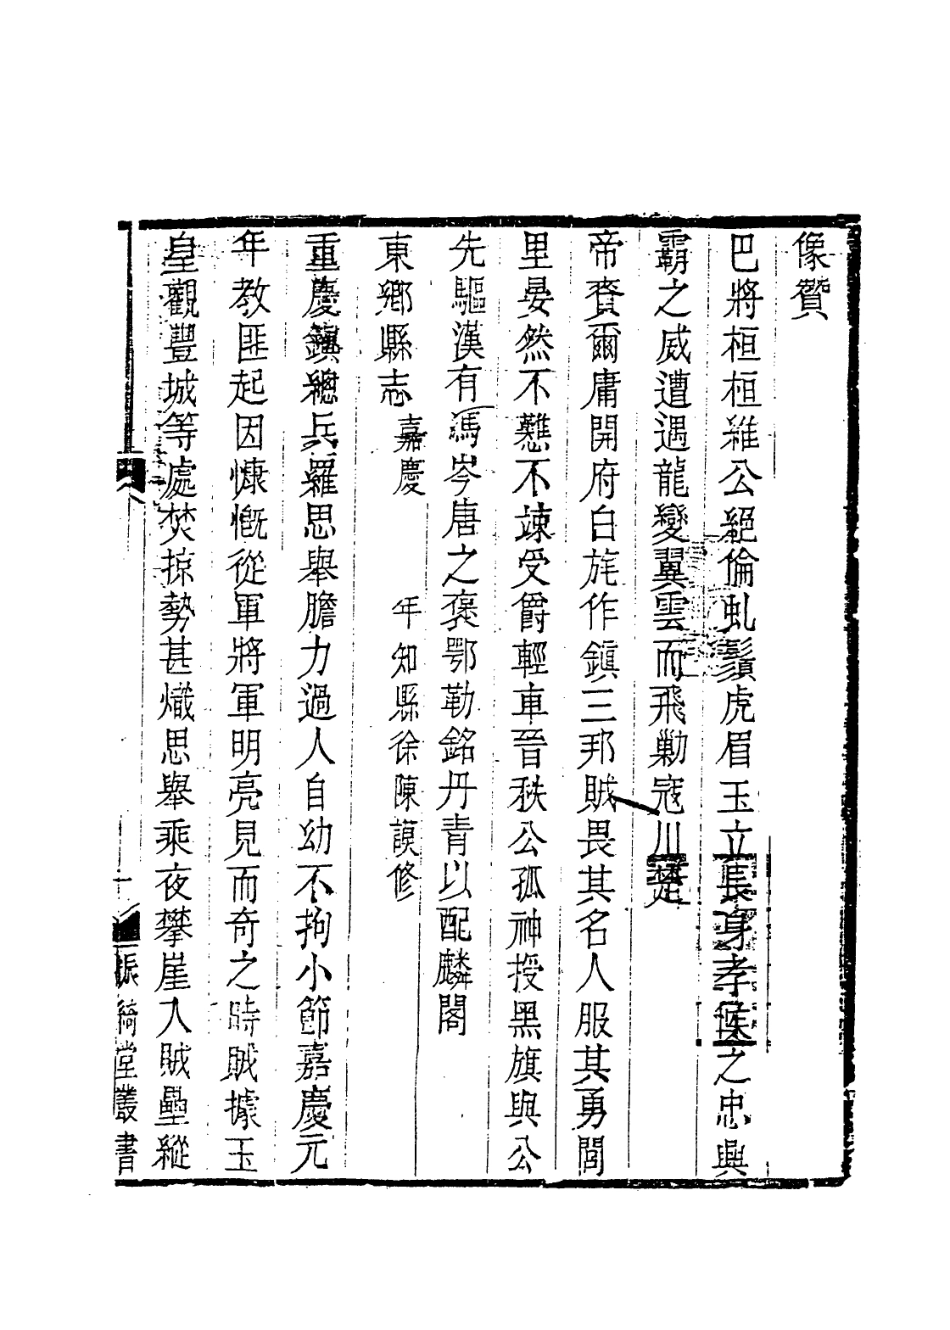 像贊
巴將桓桓維公絕倫虬鬚虎眉玉立長身孝侯之忠與
霸之威遭遇龍變翼雲而飛勦寇川楚
帝賚爾庸開府白旄作鎮三邦賊畏其名人服其勇閭
里晏然不戁不竦受爵輕車晉秩公孤神授黑旗與公
先驅漢有馮岑唐之褒鄂勒銘丹青以配麟閣
東鄉縣志 嘉慶 年知縣徐陳謨修
重慶鎮總兵羅思舉膽力過人自幼不拘小節嘉慶元
年教匪起因慷慨從軍將軍明亮見而奇之時賊據玉
皇觀豐城等處焚掠勢甚熾思舉乘夜攀崖入賊壘縱
一 振綺堂叢書